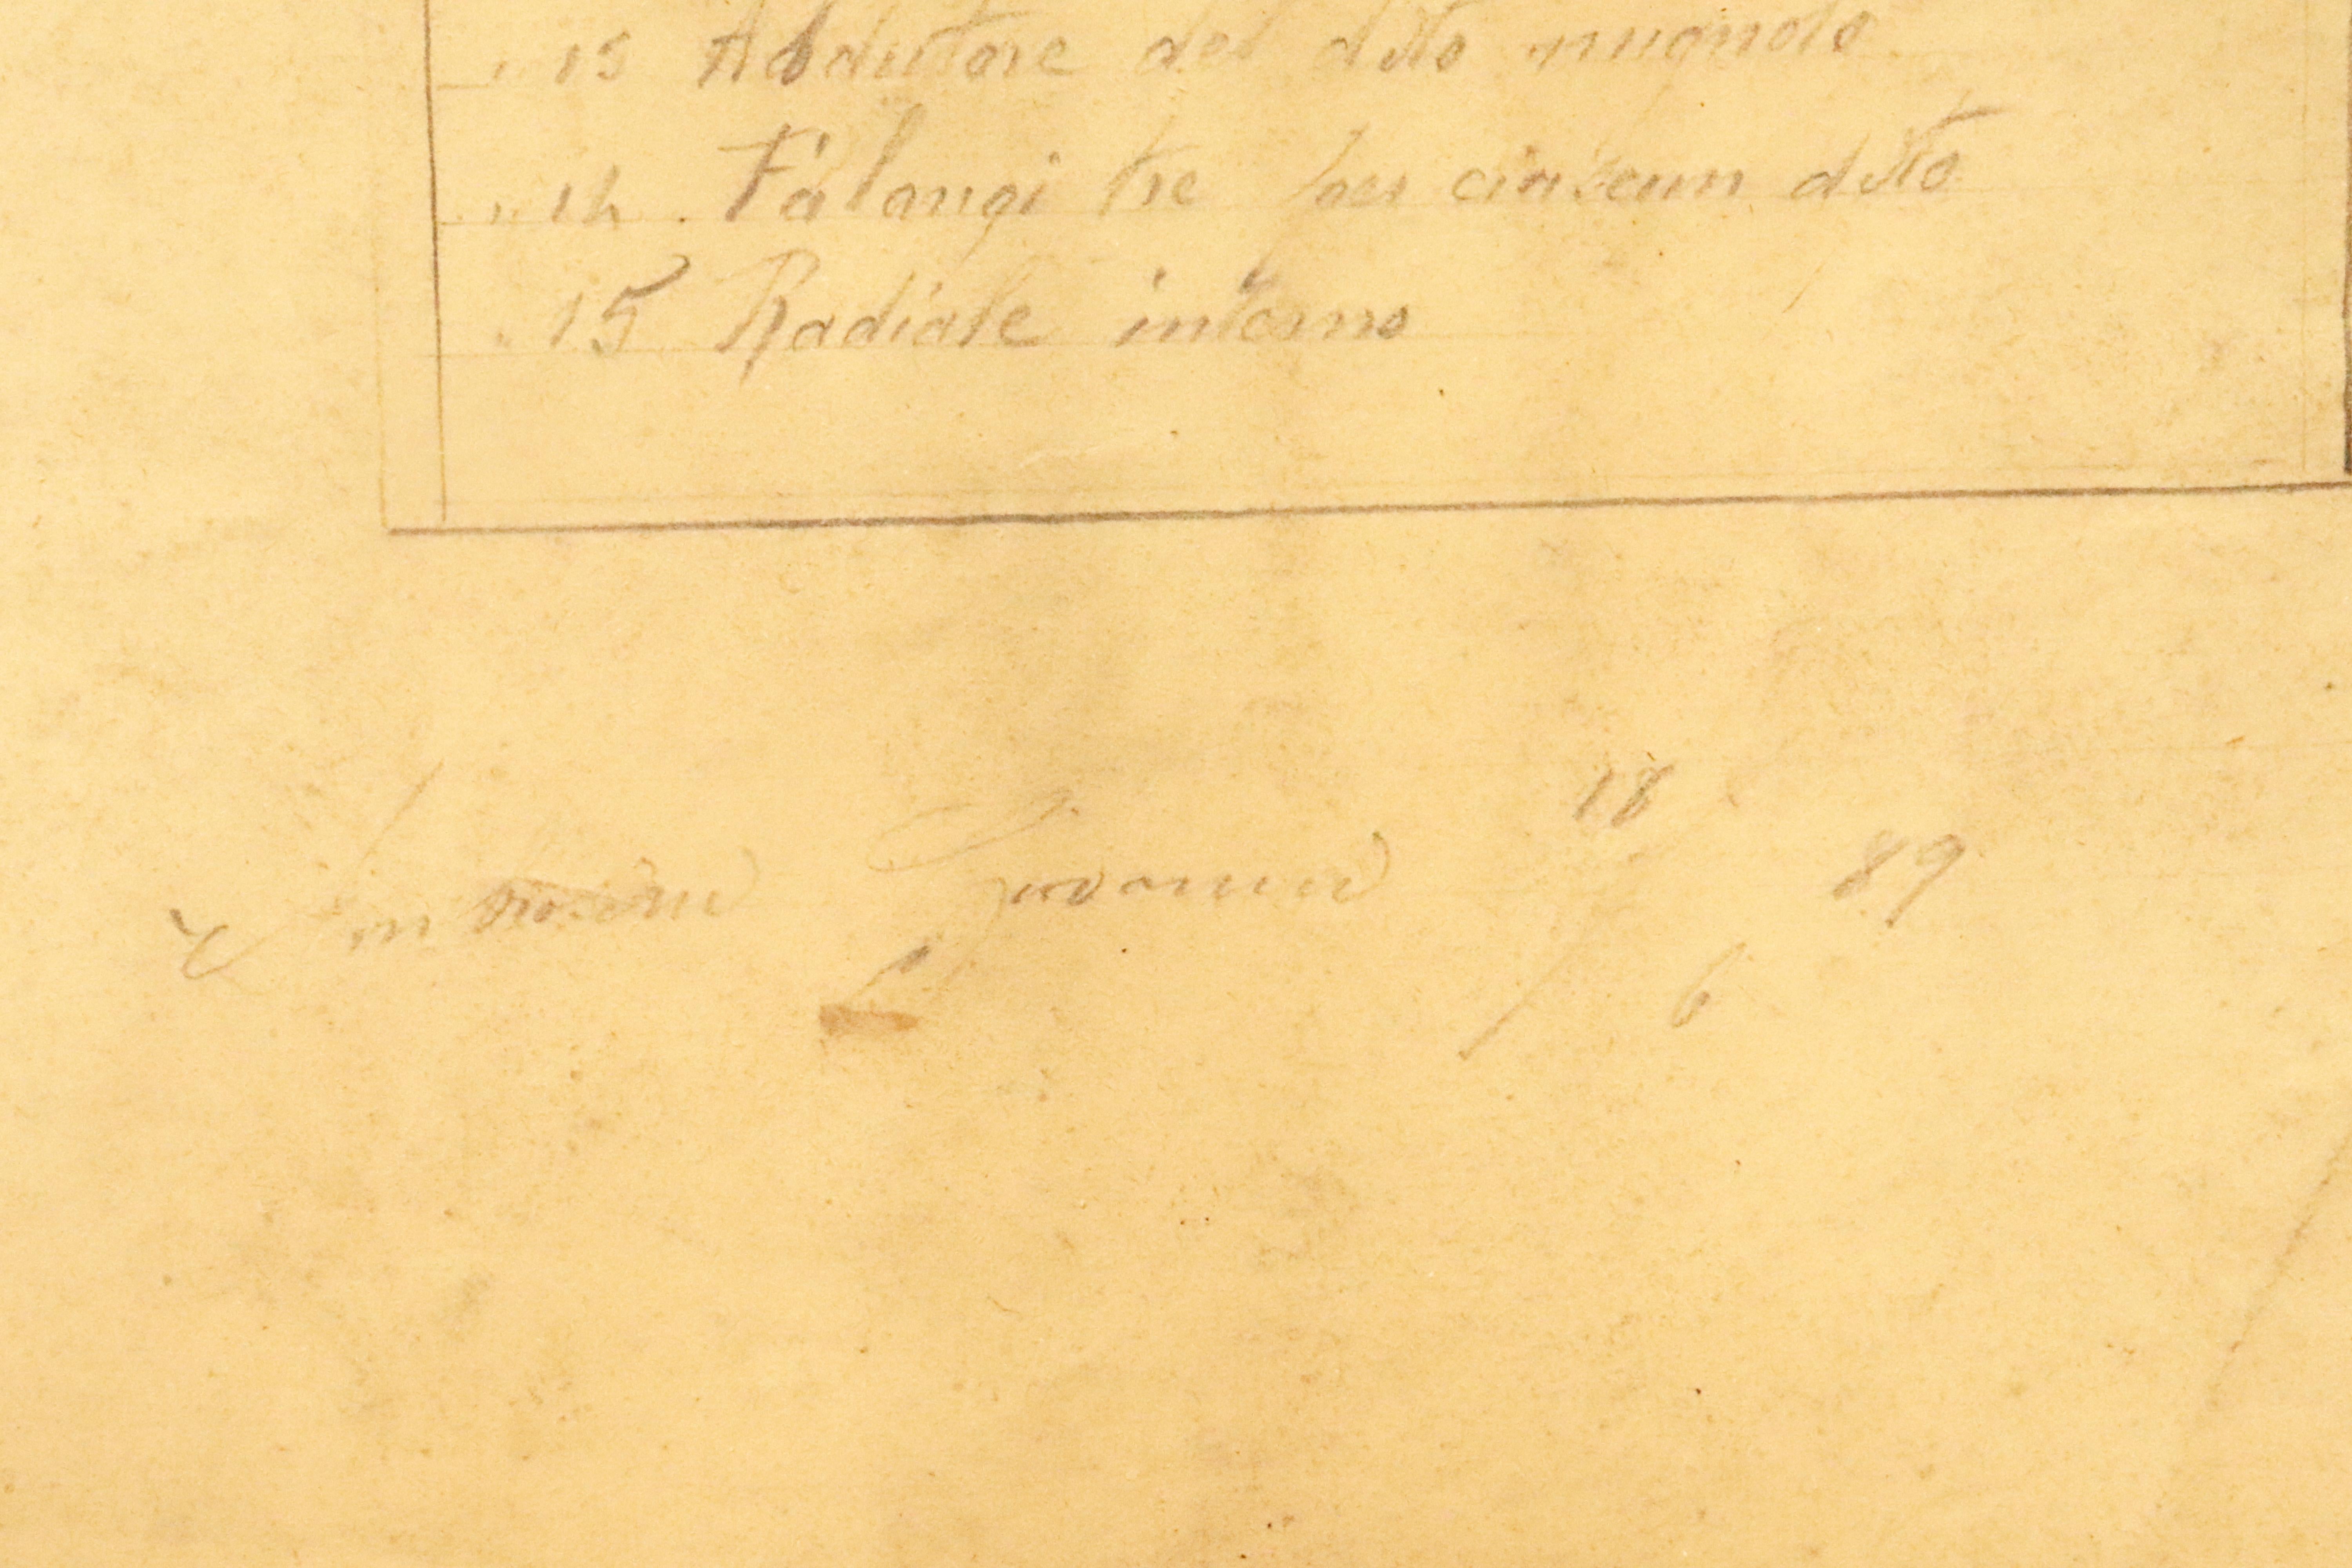 " 13 Abduttore del dito mignolo
" 14 . Falangi tre per ciascun dito
" 15 Radiale interno
Giovanni 18 6 89